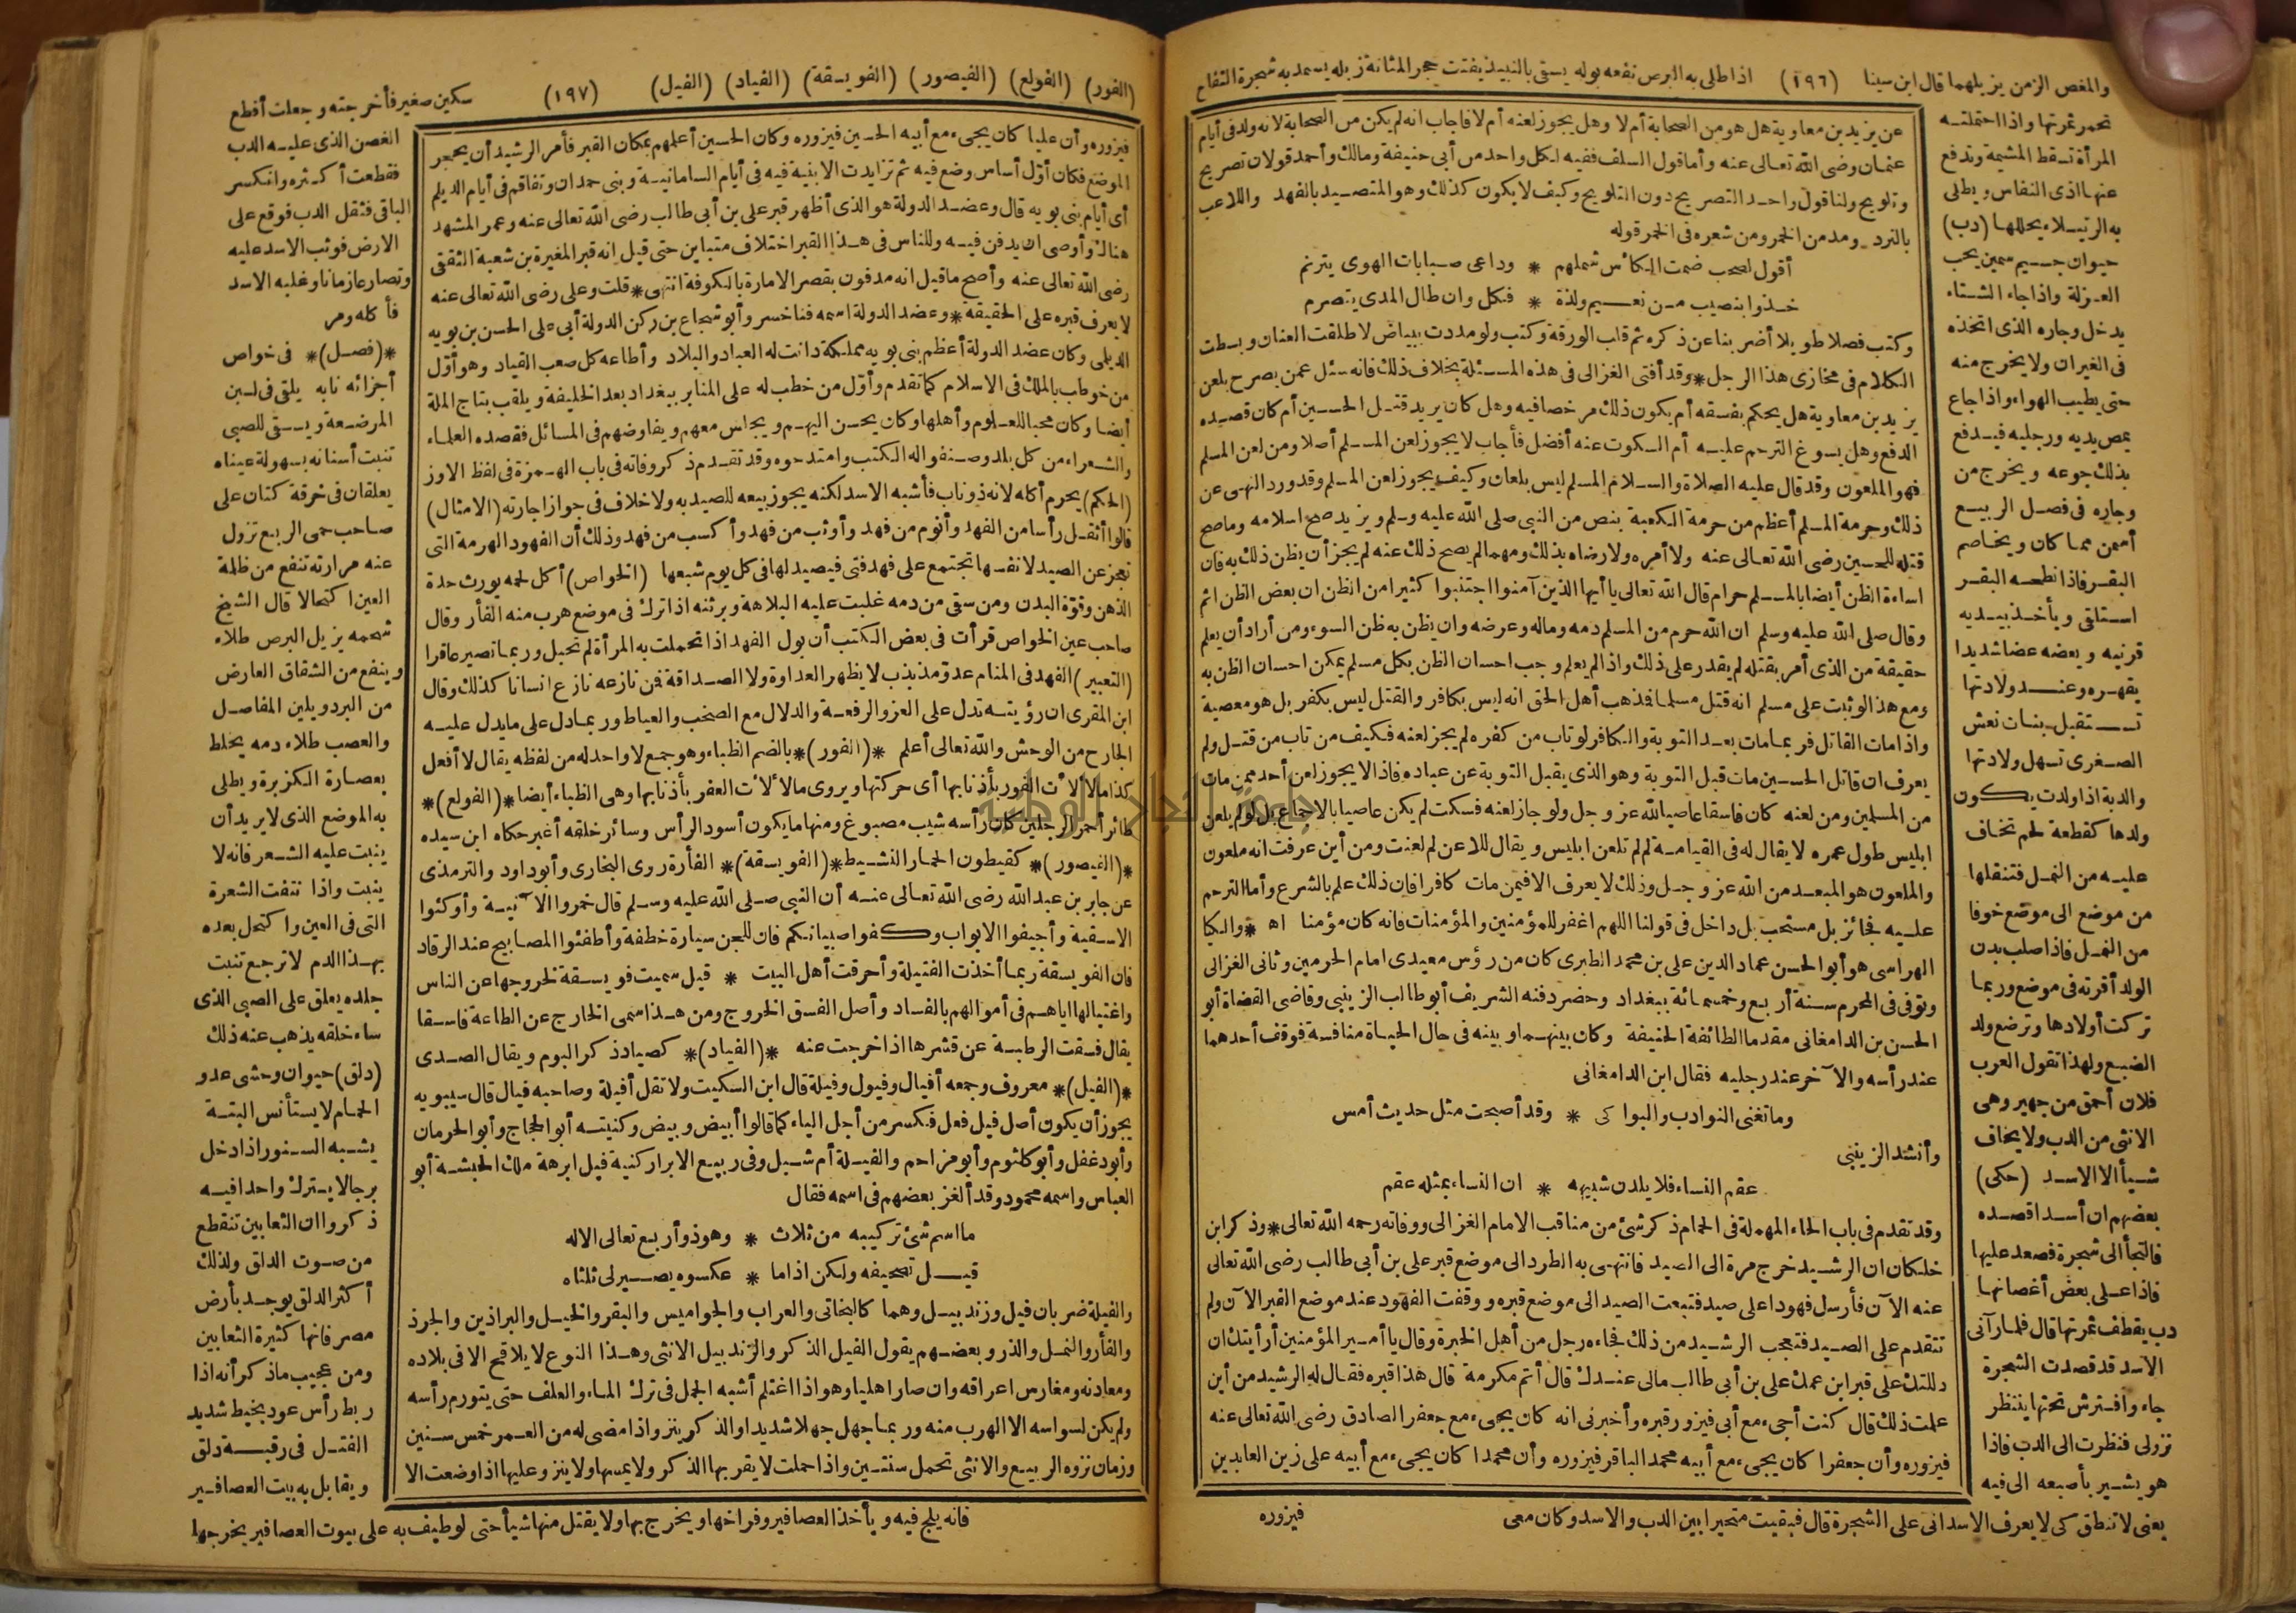 والمغص الزمن يزيلهما قال ابن سينا (١٩٦) اذا طلى به البرص نفعه بوله يسقى بالنبيذ يفتت حجر المثانة زبله يسمد به شجرة التفاح
تحمر ثمرتها واذا احتملته
المرأة تسقط المشيمة وتدفع
عنها اذى النفاس ويطلى
به الرتيلاء يحللها (دب)
حيوان جسيم سمين يحب
العزلة واذا جاء الشتاء
يدخل وجاره الذى اتخذه
فى الغيران ولا يخرج منه
حتى يطيب الهواء واذا جاع
يمص يديه ورجليه فيدفع
بذلك جوعه ويخرج من
وجاره فى فصل الربيع
أسمن مما كان ويخاصم
البقر فاذا نطحه البقر
استلقى ويأخذ بيديه
قرنيه ويعضه عضا شديدا
يقهره وعند ولادتها
تستقبل بنات نعش
الصغرى تسهل ولادتها
والدبة اذا ولدت يكون
ولدها كقطعة لحم تخاف
عليه من النمل فتنقلها
من موضع الى موضع خوفا
من النمل فاذا صلب بدن
الولد أقرته فى موضع وربما
تركت أولادها وترضع ولد
الضبع ولهذا تقول العرب
فلان أحمق من جهبر وهى
الانثى من الدب ولا يخاف
شيأ الا الاسد (حكى)
بعضهم ان أسدا قصده
فالتجأ الى شجرة فصعد عليها
فاذا على بعض أغصانها
دب يقطف ثمرتها قال فلما رآنى
الاسد قد قصدت الشجرة
جاء وافترش تحتها ينتظر
نزولى فنظرت الى الدب فاذا
هو يشير بأصبعه الى فيه
يعنى لا تنطق كى لا يعرف الاسد انى على الشجرة قال فبقيت متحيرا بين الدب والاسد وكان معى
عن يزيد بن معاوية هل هو من الصحابة أم لا وهل يجوز لعنه أم لا فاجاب انه لم يكن من الصحابة لانه ولد فى أيام
عثمان رضى الله تعالى عنه وأما قول السلف ففيه لكل واحد من أبى حنيفة ومالك وأحمد قولان تصريح
وتلويح ولنا قول واحد التصريح دون التلويح وكيف لا يكون كذلك وهو المتصيد بالفهد واللاعب
بالنرد ومدمن الخمر ومن شعره فى الخمر قوله
أقول لصحب ضمت الكأس شملهم * وداعى صبابات الهوى يترنم
خذوا بنصيب من نعيم ولذة * فكل وان طال المدى يتصرم
وكتب فصلا طويلا أضربنا عن ذكره ثم قلب الورقة وكتب ولو مددت ببياض لاطلقت العنان وبسطت
الكلام فى مخازى هذا الرجل * وقد أفتى الغزالى فى هذه المسئلة بخلاف ذلك فانه سئل عمن يصرح بلعن
يزيد بن معاوية هل يحكم بفسقه أم يكون ذلك مرخصا فيه وهل كان يريد قتل الحسين أم كان قصده
الدفع وهل يسوغ الترحم عليه أم السكوت عنه أفضل فأجاب لا يجوز لعن المسلم أصلا ومن لعن المسلم
فهو الملعون وقد قال عليه الصلاة والسلام المسلم ليس بلعان وكيف يجوز لعن المسلم وقد ورد النهى عن
ذلك وحرمة المسلم أعظم من حرمة الكعبة بنص من النبى صلى الله عليه وسلم ويزيد صح اسلامه وما صح
قتله للحسين رضى الله تعالى عنه ولا أمره ولا رضاه بذلك ومهما لم يصح ذلك عنه لم يجز أن يظن ذلك به فان
اساءة الظن أيضا بالمسلم حرام قال الله تعالى يا أيها الذين آمنوا اجتنبوا كثيرا من الظن ان بعض الظن اثم
وقال صلى الله عليه وسلم ان الله حرم من المسلم دمه وماله وعرضه وان يظن به ظن السوء ومن أراد أن يعلم
حقيقة من الذى أمر بقتله لم يقدر على ذلك واذا لم يعلم وجب احسان الظن بكل مسلم يمكن احسان الظن به
ومع هذا لو ثبت على مسلم انه قتل مسلما فذهب أهل الحق انه ليس بكافر والقتل ليس بكفر بل هو معصية
واذا مات القاتل فربما مات بعد التوبة والكافر لو تاب من كفره لم يجز لعنه فكيف من تاب من قتل ولم
يعرف ان قاتل الحسين مات قبل التوبة وهو الذى يقبل التوبة عن عباده فاذا لا يجوز لعن أحد ممن مات
من المسلمين ومن لعنه كان فاسقا عاصيا لله عز وجل ولو جاز لعنه فسكت لم يكن عاصيا بالاجماع بل لو لم يلعن
ابليس طول عمره لا يقال له فى القيامة لم لم تلعن ابليس ويقال للاعن لم لعنت ومن أين عرفت انه ملعون
والملعون هو المبعد من الله عز وجل وذلك لا يعرف الا فيمن مات كافرا فان ذلك علم بالشرع وأما الترحم
عليه فجائز بل مستحب بل داخل فى قولنا اللهم اغفر للمؤمنين والمؤمنات فانه كان مؤمنا اه * والكيا
الهراسى هو أبو الحسن عماد الدين على بن محمد الطبرى كان من رؤس معيدى امام الحرمين وثانى الغزالى
وتوفى فى المحرم سنة أربع وخمسمائة ببغداد وحضر دفنه الشريف أبو طالب الزينبى وقاضى القضاة أبو
الحسن بن الدامغانى مقدما الطائفة الحنيفة وكان بينهما وبينه فى حال الحياة منافسة فوقف أحدهما
عند رأسه والآخر عند رجليه فقال ابن الدامغانى
وما تغنى النوادب والبواكى * وقد أصبحت مثل حديث أمس
وأنشد الزينبى
عقم النساء فلا يلدن شبيهه * ان النساء بمثله عقم
وقد تقدم فى باب الحاء المهملة فى الحمام ذكر شئ من مناقب الامام الغزالى ووفاته رحمه الله تعالى * وذكر ابن
خلكان ان الرشيد خرج مرة الى الصيد فانتهى به الطرد الى موضع قبر على بن أبى طالب رضى الله تعالى
عنه الآن فأرسل فهودا على صيد فتبعت الصيد الى موضع قبره ووقفت الفهود عند موضع القبر الآن ولم
تتقدم على الصيد فتعجب الرشيد من ذلك فجاءه رجل من أهل الخبرة وقال يا أمير المؤمنين أرأيتك ان
دللتك على قبر ابن عمك على بن أبى طالب مالى عندك قال أتم مكرمة قال هذا قبره فقال له الرشيد من أين
علمت ذلك قال كنت أجىء مع أبى فيزور قبره وأخبرنى انه كان يجىء مع جعفر الصادق رضى الله تعالى عنه
فيزوره وأن جعفرا كان يجىء مع أبيه محمد الباقر فيزوره وأن محمدا كان يجىء مع أبيه على زين العابدين
فيزوره
(الفور) (الفولع) (الفيصور) (الفويسقة) (الفياد) (الفيل) (١٩٧)
فيزوره وأن عليا كان يجىء مع أبيه الحسين فيزوره وكان الحسين أعلمهم بمكان القبر فأمر الرشيد أن يحجر
الموضع فكان أول أساس وضع فيه ثم تزايدت الابنية فيه فى أيام السامانية وبنى حمدان وتفاقم فى أيام الديلم
أى أيام بنى بويه قال وعضد الدولة هو الذى أظهر قبر على بن أبى طالب رضى الله تعالى عنه وعمر المشهد
هناك وأوصى ان يدفن فيه وللناس فى هذا القبر اختلاف متباين حتى قيل انه قبر المغيرة بن شعبة الثقفى
رضى الله تعالى عنه وأصح ما قيل انه مدفون بقصر الامارة بالكوفة انتهى * قلت وعلى رضى الله تعالى عنه
لا يعرف قبره على الحقيقه * وعضد الدولة اسمه فناخسر وأبو شجاع بن ركن الدولة أبى على الحسن بن بويه
الديلمى وكان عضد الدولة أعظم بنى بويه مملكة دانت له العباد والبلاد وأطاعه كل صعب القياد وهو أول
من خوطب بالملك فى الاسلام كما تقدم وأول من خطب له على المنابر ببغداد بعد الخليفة ويلقب بتاج الملة
أيضا وكان محبا للعلوم وأهلها وكان يحسن اليهم ويجلس معهم ويفاوضهم فى المسائل فقصده العلماء
والشعراء من كل بلد وصنفوا له الكتب وامتدحوه وقد تقدم ذكر وفاته فى باب الهمزة فى لفظ الاوز
(الحكم) يحرم أكله لانه ذو ناب فأشبه الاسد لكنه يجوز بيعه للصيد به ولا خلاف فى جواز اجارته (الامثال)
قالوا أثقل رأسا من الفهد وأنوم من فهد وأوثب من فهد وأكسب من فهد وذلك أن الفهود الهرمة التى
تعجز عن الصيد لانفسها تجتمع على فهد فتى فيصيد لها فى كل يوم شبعها (الخواص) أكل لحمه يورث حدة
الذهن وقوة البدن ومن سقى من دمه غلبت عليه البلاهة وبرثنه اذا ترك فى موضع هرب منه الفأر وقال
صاحب عين الخواص قرأت فى بعض الكتب أن بول الفهد اذا تحملت به المرأة لم تحبل وربما تصير عاقرا
(التعبير) الفهد فى المنام عدو مذبذب لا يظهر العداوة ولا الصداقة فمن نازعه نازع انسانا كذلك وقال
ابن المقرى ان رؤيته تدل على العز والرفعة والدلال مع الصخب والعياط وربما دل على ما يدل عليه
الجارح من الوحش والله تعالى أعلم * (الفور) * بالضم الظباء وهو جمع لا واحد له من لفظه يقال لا أفعل
كذا ما لألأت الفور بأذنابها أى حركتها ويروى ما لألأت العفر بأذنابها وهى الظباء أيضا * (الفولع) *
طائر أحمر الرجلين كأن رأسه شيب مصبوغ ومنها ما يكون أسود الرأس وسائر خلقه أغبر حكاه ابن سيده
* (الفيصور) * كقيطون الحمار النشيط * (الفويسقة) * الفأرة روى البخارى وأبو داود والترمذى
عن جابر بن عبد الله رضى الله تعالى عنه أن النبى صلى الله عليه وسلم قال خمروا الآنية وأوكئوا
الاسقية وأجيفوا الابواب وكفوا صبيانكم فان للجن سيارة خطفة وأطفئوا المصابيح عند الرقاد
فان الفويسقة ربما أخذت الفتيلة وأحرقت أهل البيت * قيل سميت فويسقة لخروجها عن الناس
واغتيالها اياهم فى أموالهم بالفساد وأصل الفسق الخروج ومن هذا سمى الخارج عن الطاعة فاسقا
يقال فسقت الرطبة عن قشرها اذا خرجت عنه * (الفياد) * كصياد ذكر البوم ويقال الصدى
* (الفيل) * معروف وجمعه أفيال وفيول وفيلة قال ابن السكيت ولا تقل أفيلة وصاحبه فيال قال سيبويه
يجوز أن يكون أصل فيل فعل فكسر من أجل الياء كما قالوا أبيض وبيض وكنيته أبو الحجاج وأبو الحرمان
وأبو دغفل وأبو كلثوم وأبو مزاحم والفيلة أم شبل وفى ربيع الابرار كنية فيل ابرهة ملك الحبشة أبو
العباس واسمه محمود وقد ألغز بعضهم فى اسمه فقال
ما اسم شئ تركيبه من ثلاث * وهو ذو أربع تعالى الاله
قيل تصحيفه ولكن اذا ما * عكسوه يصير لى ثلثاه
والفيلة ضربان فيل وزندبيل وهما كالبخاتى والعراب والجواميس والبقر والخيل والبراذين والجرذ
والفأر والنمل والذر وبعضهم يقول الفيل الذكر والزندبيل الانثى وهذا النوع لا يلاقح الا فى بلاده
ومعادنه ومغارس اعراقه وان صار اهليا وهو اذا اغتلم أشبه الجمل فى ترك الماء والعلف حتى يتورم رأسه
ولم يكن لسواسه الا الهرب منه وربما جهل جهلا شديدا والذكر ينز واذا مضى له من العمر خمس سنين
وزمان نزوه الربيع والانثى تحمل سنتين واذا حملت لا يقربها الذكر ولا يمسها ولا ينزو عليها اذا وضعت الا
سكين صغير فأخرجته وجعلت أقطع
الغصن الذى عليه الدب
فقطعت أكثره وانكسر
الباقى فثقل الدب فوقع على
الارض فوثب الاسد عليه
وتصارعا زمانا وغلبه الاسد
فأكله ومر
* (فصل) * فى خواص
أجزائه نابه يلقى فى لبن
المرضعة ويسقى للصبى
تنبت أسنانه بسهولة عيناه
يعلقان فى خرقة كتان على
صاحب حمى الربع تزول
عنه مرارته تنفع من ظلمة
العين اكتحالا قال الشيخ
شحمه يزيل البرص طلاء
وينفع من الشقاق العارض
من البرد ويلين المفاصل
والعصب طلاء دمه يخلط
بعصارة الكزبرة ويطلى
به الموضع الذى لا يريد أن
ينبت عليه الشعر فانه لا
ينبت واذا نتفت الشعرة
التى فى العين واكتحل بعده
بهذا الدم لا ترجع تنبت
جلده يعلق على الصبى الذى
ساء خلقه يذهب عنه ذلك
(دلق) حيوان وحشى عدو
الحمام لا يستأنس البتة
يشبه السنور اذا دخل
برجا لا يترك واحدا فيه
ذكروا ان الثعابين تنقطع
من صوت الدلق ولذلك
أكثر الدلق يوجد بأرض
مصر فانها كثيرة الثعابين
ومن عجيب ما ذكر أنه اذا
ربط رأس عود بخيط شديد
الفتل فى رقبة دلق
ويقابل به بيت العصافير
فانه يلج فيه ويأخذ العصافير وفراخها ويخرج بها ولا يقتل منها شيأ حتى لو طيف به على بيوت العصافير يخرجها